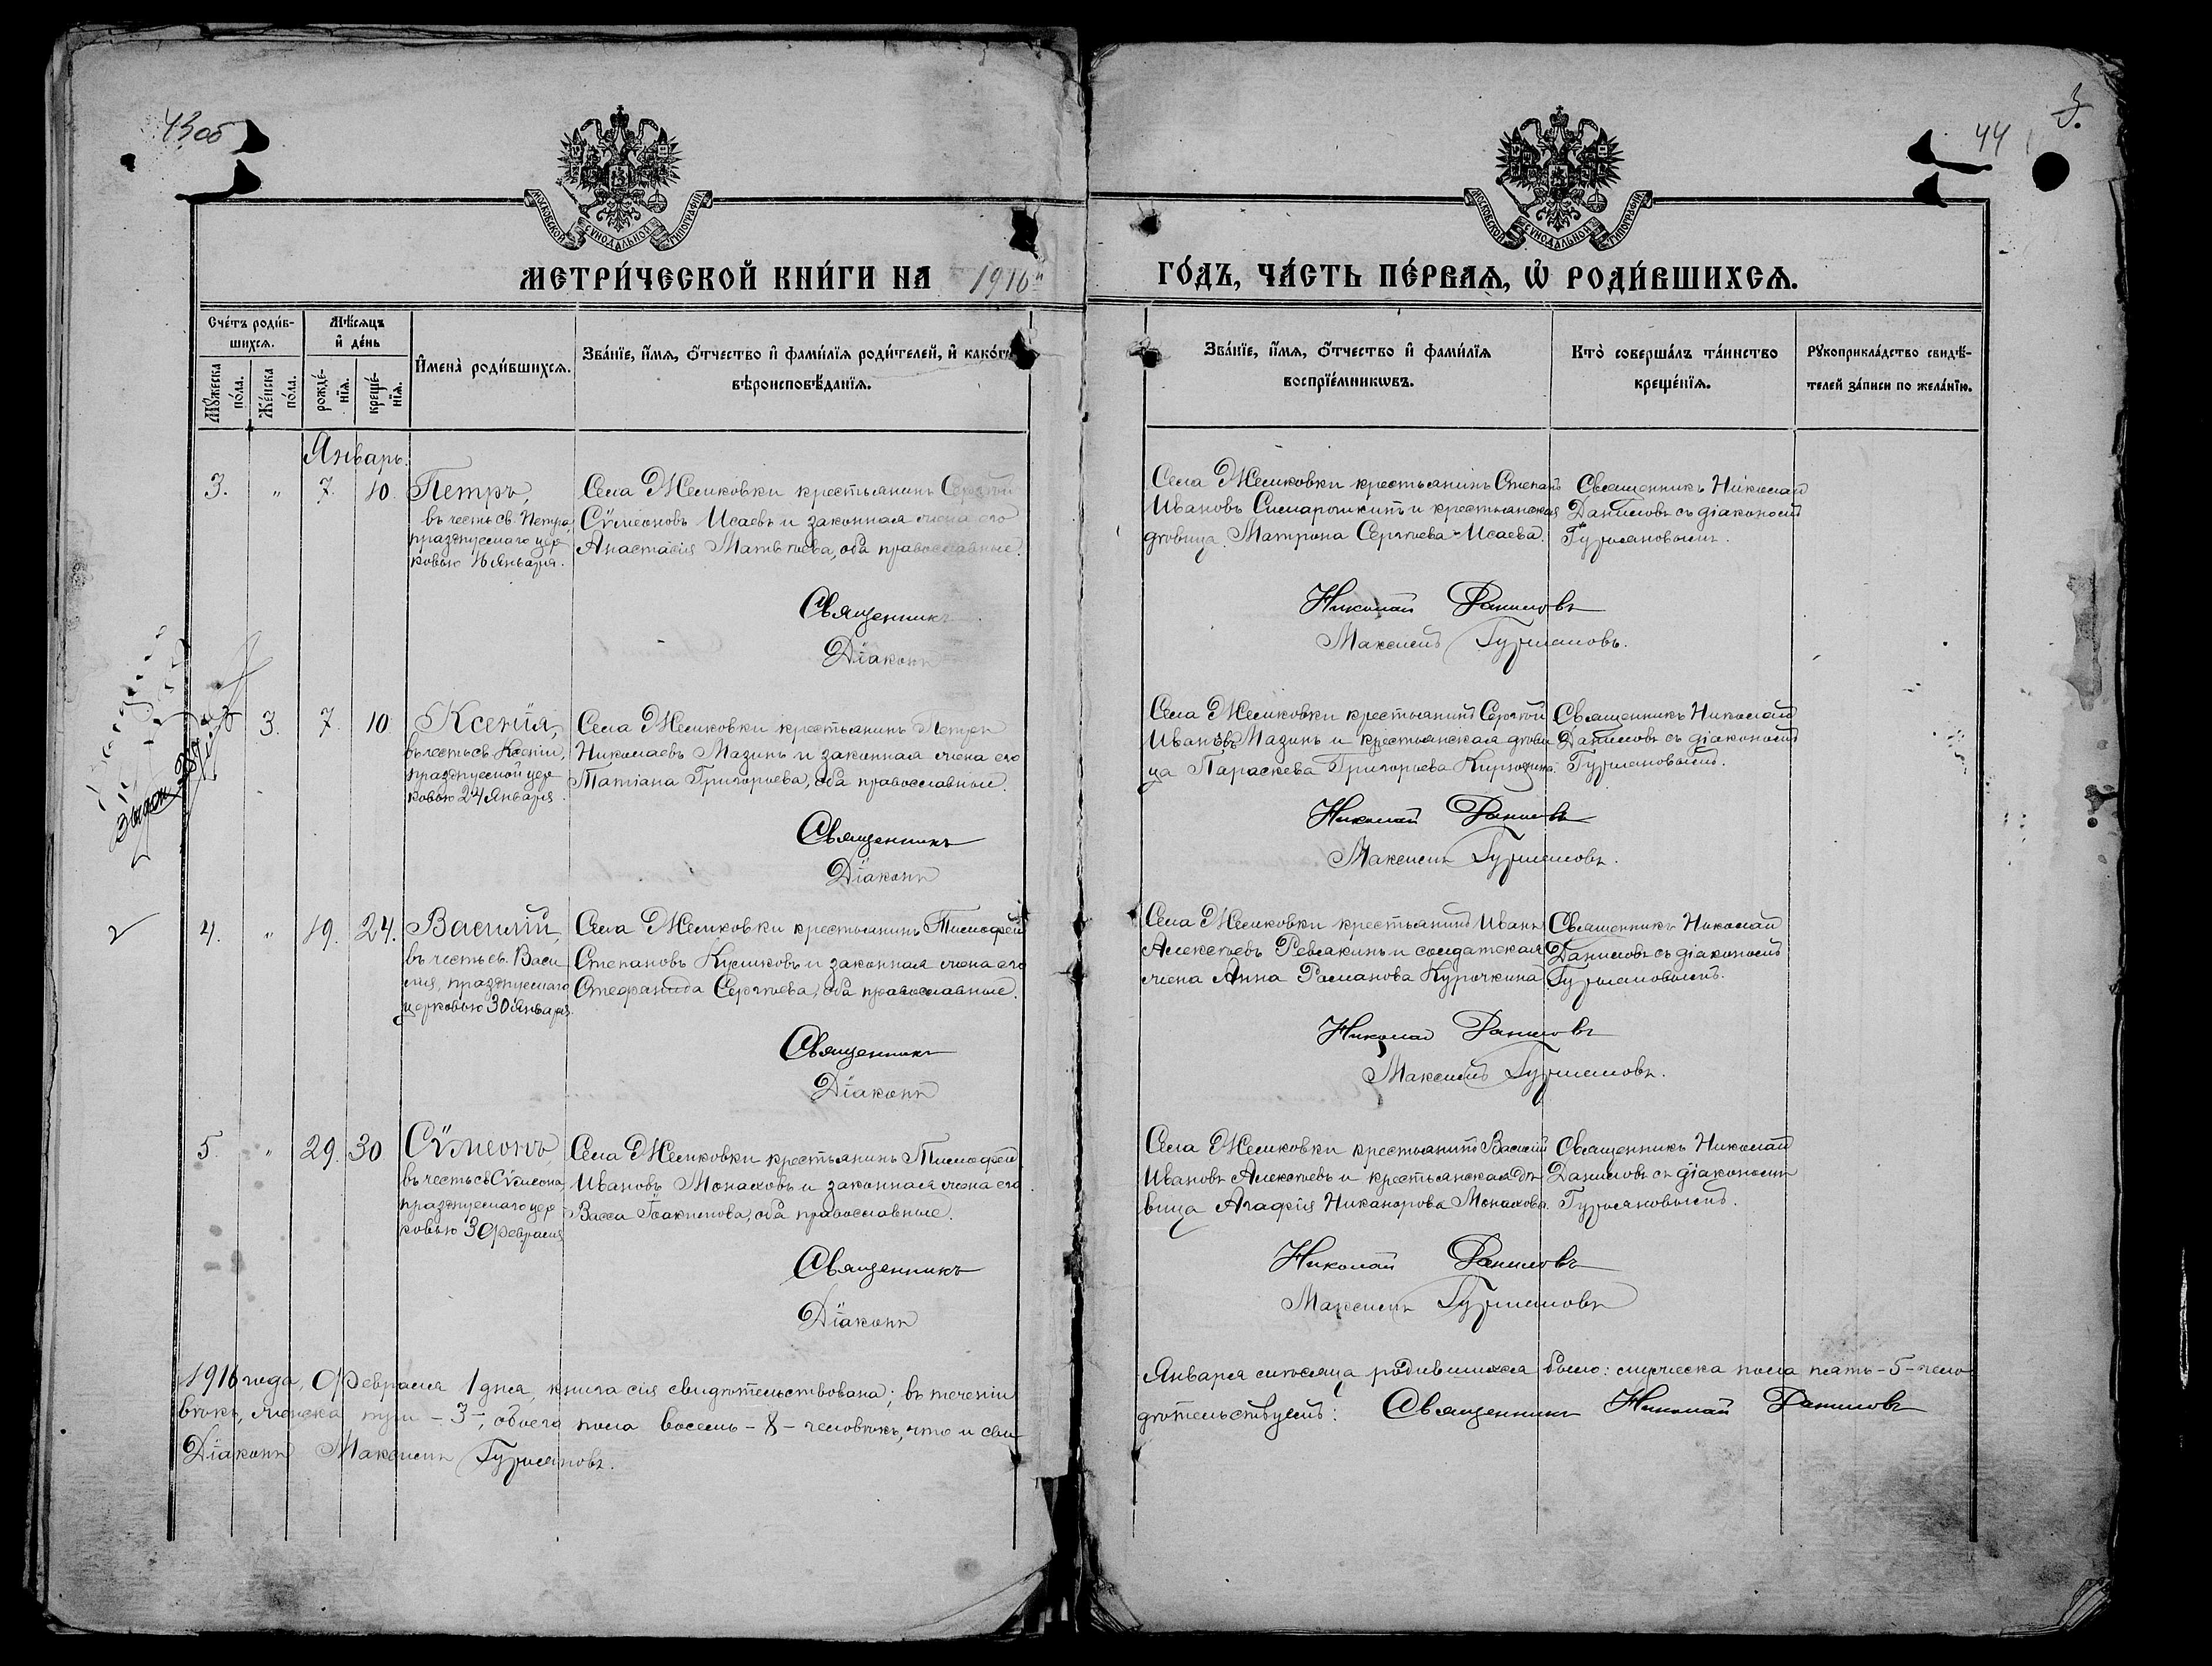 43 об
44
3.
МОСКОВСКОЙ СѴНОДАЛЬНОЙ ТИПОГРАФІИ
МОСКОВСКОЙ СѴНОДАЛЬНОЙ ТИПОГРАФІИ
МЕТРИ́ЧЕСКОЙ КНИ́ГИ НА 1916й
ГО́ДЪ, ЧА́СТЬ ПЕ́РВАѦ, Ѡ҆ РОДИ́ВШИХСѦ.
Сче́тъ роди́в-
шихсѧ.
Мꙋ́жеска
по́ла.
Же́нска
по́ла.
Мѣ́сѧцъ
и҆ де́нь
рожде́-
нїѧ.
креще́-
нїѧ.
И҆мена̀ роди́вшихсѧ.
Зва́нїе, и҆́мѧ, ѻ҆́тчество и҆ фами́лїѧ роди́телей, и҆ како́гѡ
вѣроисповѣ́данїѧ.
Зва́нїе, и҆́мѧ, ѻ҆́тчество и҆ фами́лїѧ
воспрїе́мникѡвъ.
Кто̀ соверша́лъ та́инство
креще́нїѧ.
Рꙋкоприкла́дство свидѣ́-
телей за́писи по жела́нїю.
Январь.
3. " 7. 10. Петръ,
въ честь св. Петра,
празднуемаго цер
ковью 16 января.
Села Желиковки крестьянинъ Сергѣй
Сѵмеоновъ Исаевъ и законная жена его
Анастасія Матвѣева, оба православные.
Священникъ
Діаконъ
Села Желиковки крестьянинъ Степанъ
Ивановъ и крестьянская
дѣвица Матрона Сергѣева Исаева.
Священникъ Николай
Даниловъ съ діакономъ
Гурмановымъ.
Николай Даниловъ
Максимъ Гурмановъ.
3. 7. 10 Ксенія,
въ честь св. Ксеніи,
празднуемой цер
ковью 24 января.
Села Желиковки крестьянинъ Петръ
Николаевъ Мазинъ и законная жена его
Татіана Григорьева, оба православные.
Священникъ
Діаконъ
Села Желиковки крестьянинъ Сергѣй
Ивановъ Мазинъ и крестьянская дѣви
ца Параскева Григорьева
Священникъ Николай
Даниловъ съ діакономъ
Гурмановымъ.
Николай Даниловъ
Максимъ Гурмановъ.
4. " 19. 24. Василій,
въ честь св. Васи
лія, празднуемаго
церковью 30 января.
Села Желиковки крестьянинъ Тимофей
Степановъ Куликовъ и законная жена его
Стефанида Сергѣева, оба православные.
Священникъ
Діаконъ
Села Желиковки крестьянинъ Иванъ
Алексѣевъ Ревякинъ и солдатская
жена Анна Романова Курочкина
Священникъ Николай
Даниловъ съ діакономъ
Гурмановымъ.
Николай Даниловъ
Максимъ Гурмановъ.
5. " 29. 30 Сѵмеонъ,
въ честь св Сѵмеона,
празднуемаго цер
ковью 3 февраля
Села Желиковки крестьянинъ Тимофей
Ивановъ Монаховъ и законная жена его
Васса Іоакимова, оба православные.
Священникъ
Діаконъ
Села Желиковки крестьянинъ Василій
Ивановъ Алексѣевъ и крестьянская дѣ
вица Агафія Никанорова Монахова.
Священникъ Николай
Даниловъ съ діакономъ
Гурмановымъ.
Николай Даниловъ
Максимъ Гурмановъ
1916 года, Февраля 1 дня, книга сія свидѣтельствована; въ теченіи
Января мѣсяца родившихся было: мужеска пола пять - 5 - чело
вѣкъ, женска три - 3 -, обоего пола восемь - 8 - человѣкъ, что и сви
дѣтельствуемъ: Священникъ Николай Даниловъ
Діаконъ Максимъ Гурмановъ.